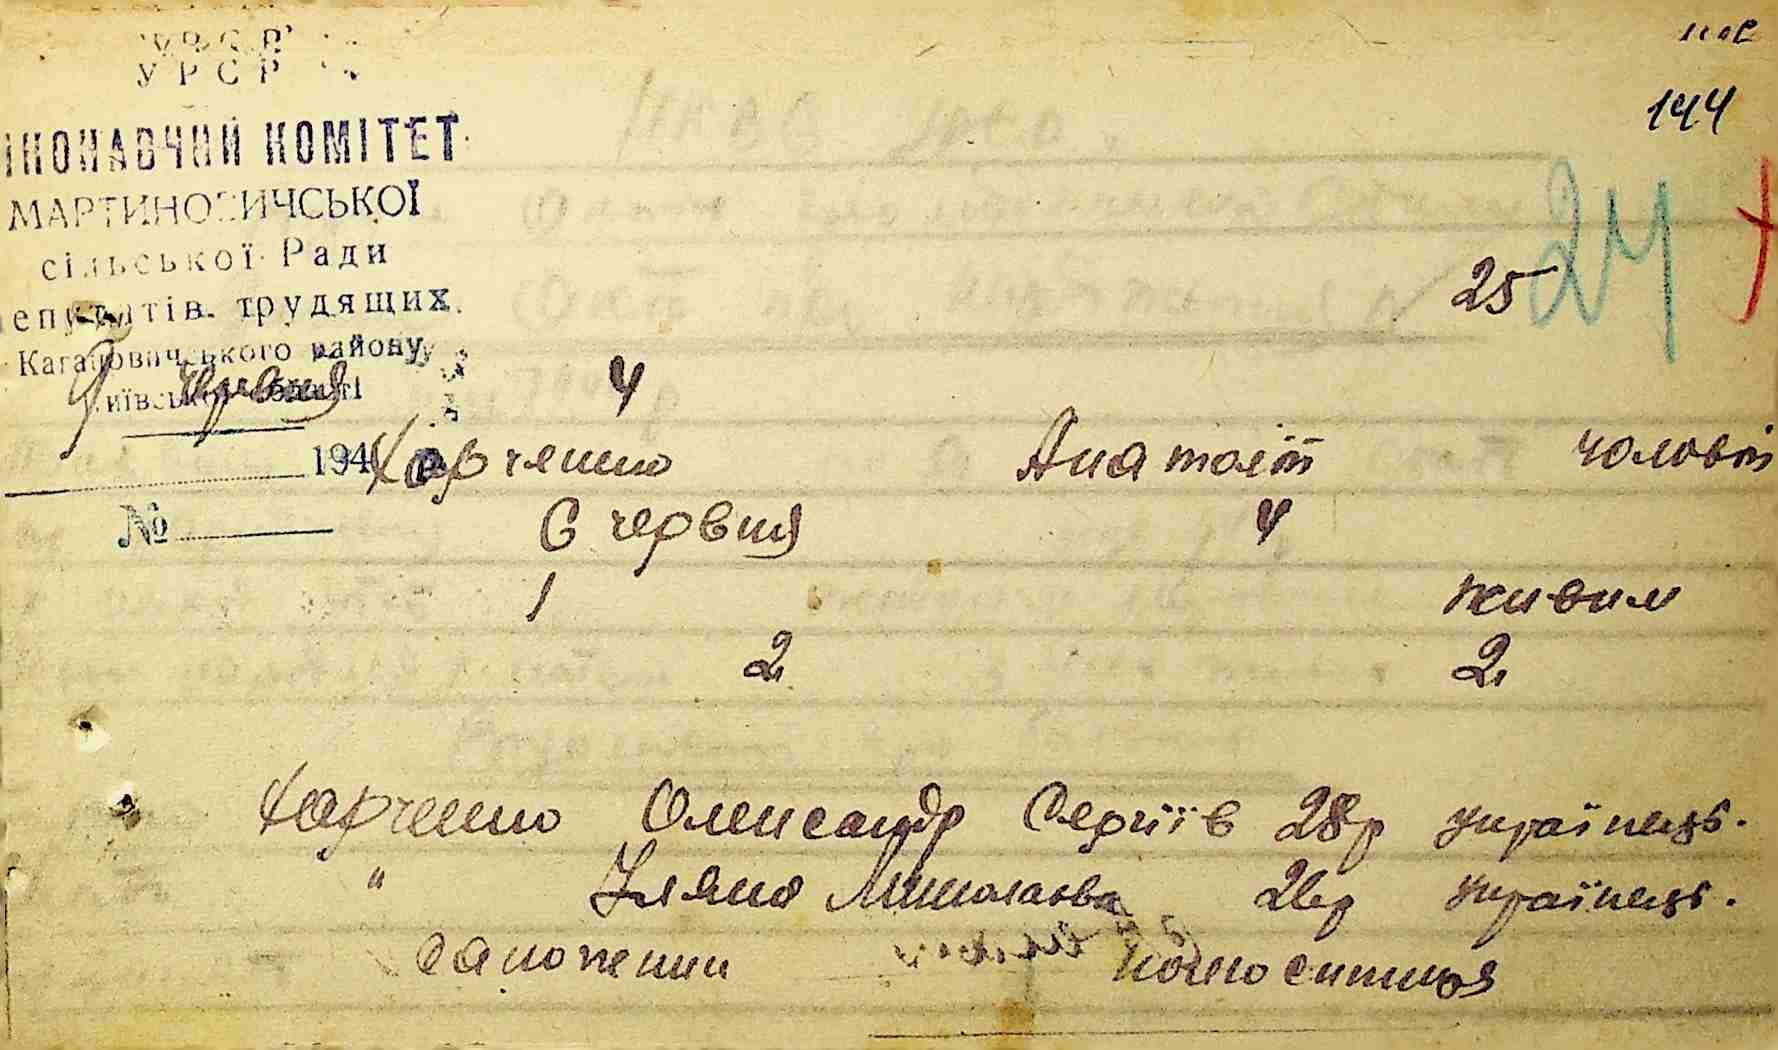 УРСР
144
ІКОНАВЧИЙ КОМІТЕТ
МАРТИНОВИЧСЬКОЇ
сільської Ради
епутатів трудящих
25 24
Кагановичського району
Київської області
9 червня 4
194 Харченко Анатолій чоловіч
№ 6 червня 4
1 живим
2 2
Харченко Олександр Сергіїв 28р українець.
" Уляна Миколаєва 26р українець.
сапожник колгоспниця